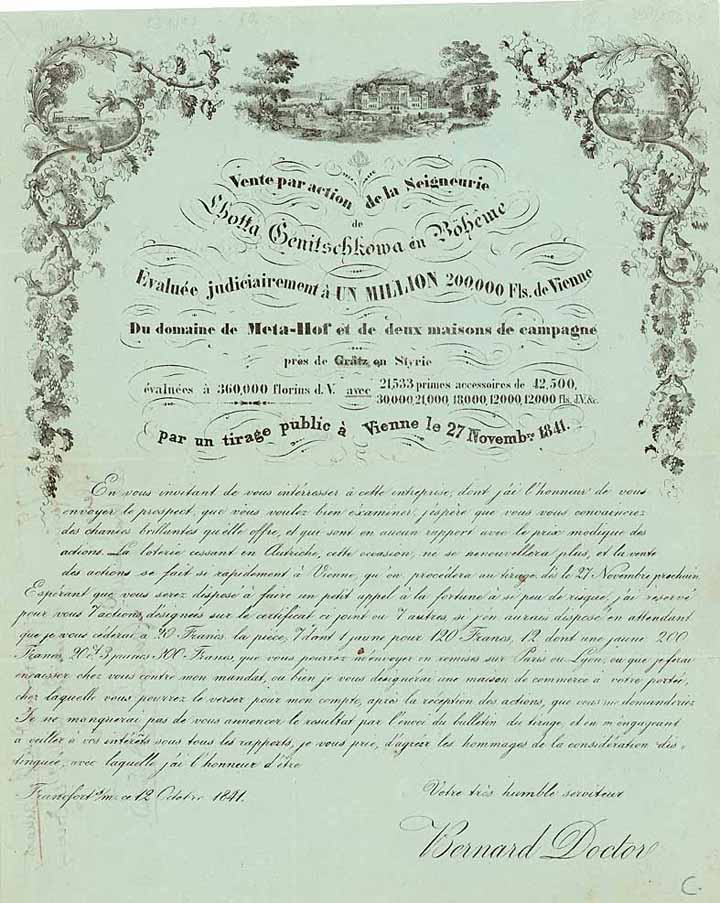 Vente par action de la Seigneurie
de
Lhotta Genitschkowa en Böheme
Evaluée judiciairement à UN MILLION 200,000 Fls. de Vienne
Du domaine de Meta-Hof et de deux maisons de campagne
près de Grätz en Styrie
évaluées à 360,000 florins d. V. avec 21,533 primes accessoires de 42,500,
30,000, 21,000, 18,000, 12000, 12000 fls. d.V. &c.
par un tirage public à Vienne le 27 Novembre 1841.
En vous invitant de vous intérresser à cette entreprise, dont j'ai l'honneur de vous
envoyer le prospect, que vous voulez bien examiner, j'espère que vous vous convaincrez
des chances brillantes qu'elle offre, et que sont en aucun rapport avec le prix modique des
actions. La loterie cessant en Autriche, cette occasion, ne se renouvellera plus, et la vente
des actions se fait si rapidement à Vienne, qu'on procédera au tirage dès le 27 Novembre prochain
Espérant que vous serez disposé à faire un petit appel à la fortune à si peu de risque, j'ai reservé
pour vous 7 actions, désignés sur le certificat ci joint ou 7 autres, si j'en aurais disposé en attendant
que je vous céderai à 20 Francs la pièce, 7 dont 1 jaune pour 120 Francs, 12 dont une jaune 200
Francs, 20 d. 3 jaunes 300 Francs, que vous pourrez m'envoyer en remises sur Paris ou Lyon, ou que je ferai
encaisser chez vous contre mon mandat, ou bien je vous désignerai une maison de commerce à votre portée,
chez laquelle vous pourrez le verser pour mon compte, après la réception des actions, que vous me demanderiez.
Je ne manquerai pas de vous annoncer le resultat par l'envoi du bulletin du tirage, et en m'engageant
à veiller à vos intérêts sous tous les rapports, je vous prie, d'agréer les hommages de la considération dis-
tinguée, avec laquelle j'ai l'honneur d'être
Francfort s/m. ce 12 Octbre 1841. Votre très humble serviteur
Bernard Doctor
C.